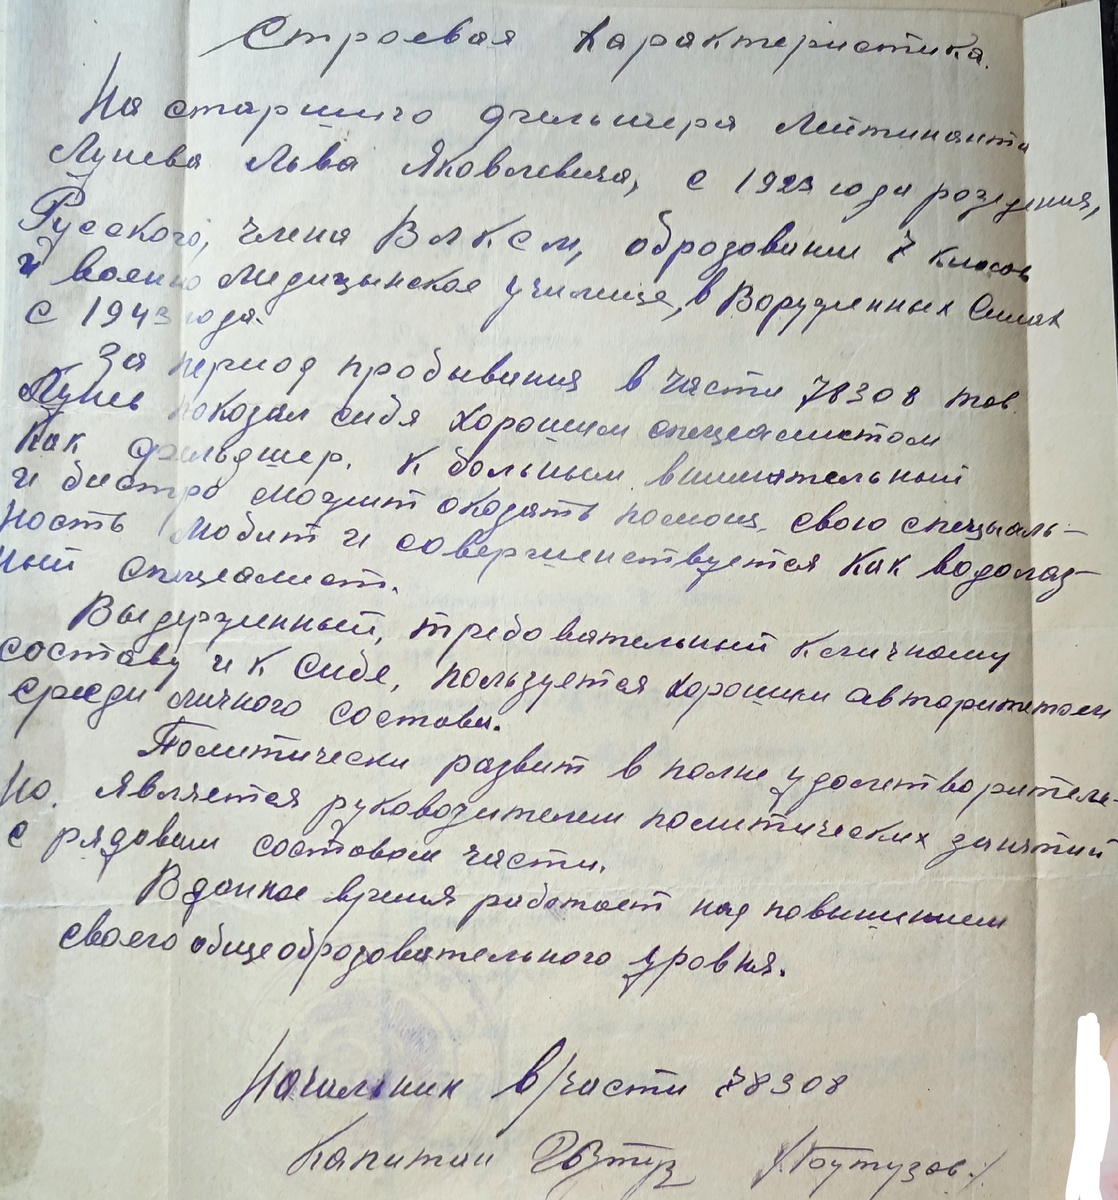 Строевая Характеристика.
На старшего фельшера Лейтинанта
Лунева Льва Яковлевича, с 1923 года рождения,
Русского, члена ВЛКСМ, оброзовании 7 класов
и военно медицынское училище, в Воруженных Силах
с 1943 года.
За период пробывания в части 78308 тов.
Лунев показал сибя хорошим специалистом
Как фельдшер. К больным внимательный
и быстроможит оказать помощ, свою специаль-
ность любит и совершенствуется как водолаз-
ный специалист.
Выдержинный, требовательный к личному
составу и к сибе, пользуется хорошим авторитетом
среди личного состава.
Политически развит в полне удолетворитель-
но. Является руководителем политических занятий
с рядовым составом части.
В данное время работает над повышением
своего общеоброзовательного уровня.
Начальник в/части 78308
Капитан /Коутузов/